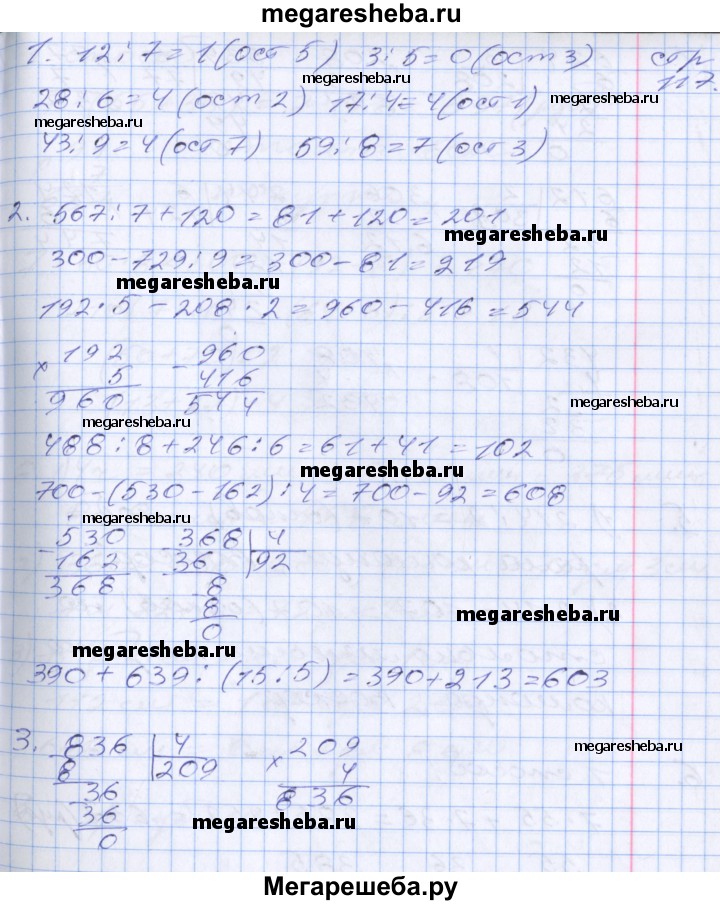 megaresheba.ru
1. 12:7=1(ост 5) 3:5=0(ост 3) стр 117.
megaresheba.ru
megaresheba.ru
28:6=4(ост 2) 17:4=4(ост 1)
megaresheba.ru
43:9=4(ост 7) 59:8=7(ост 3)
2. 567:7+120=81+120=201
megaresheba.ru
300-729:9=300-81=219
megaresheba.ru
192·5-208·2=960-416=544
192 960
× 5 - 416
960 544
megaresheba.ru
megaresheba.ru
488:8+246:6=61+41=102
megaresheba.ru
700-(530-162):4=700-92=608
megaresheba.ru
- 530 - 368 4
162 36 92
368 - 8
8
0
megaresheba.ru
megaresheba.ru
390+639:(15:5)=390+213=603
3. - 836 4 × 209
8 209 4
- 36 836
36
0
megaresheba.ru
megaresheba.ru
Мегарешеба.ру